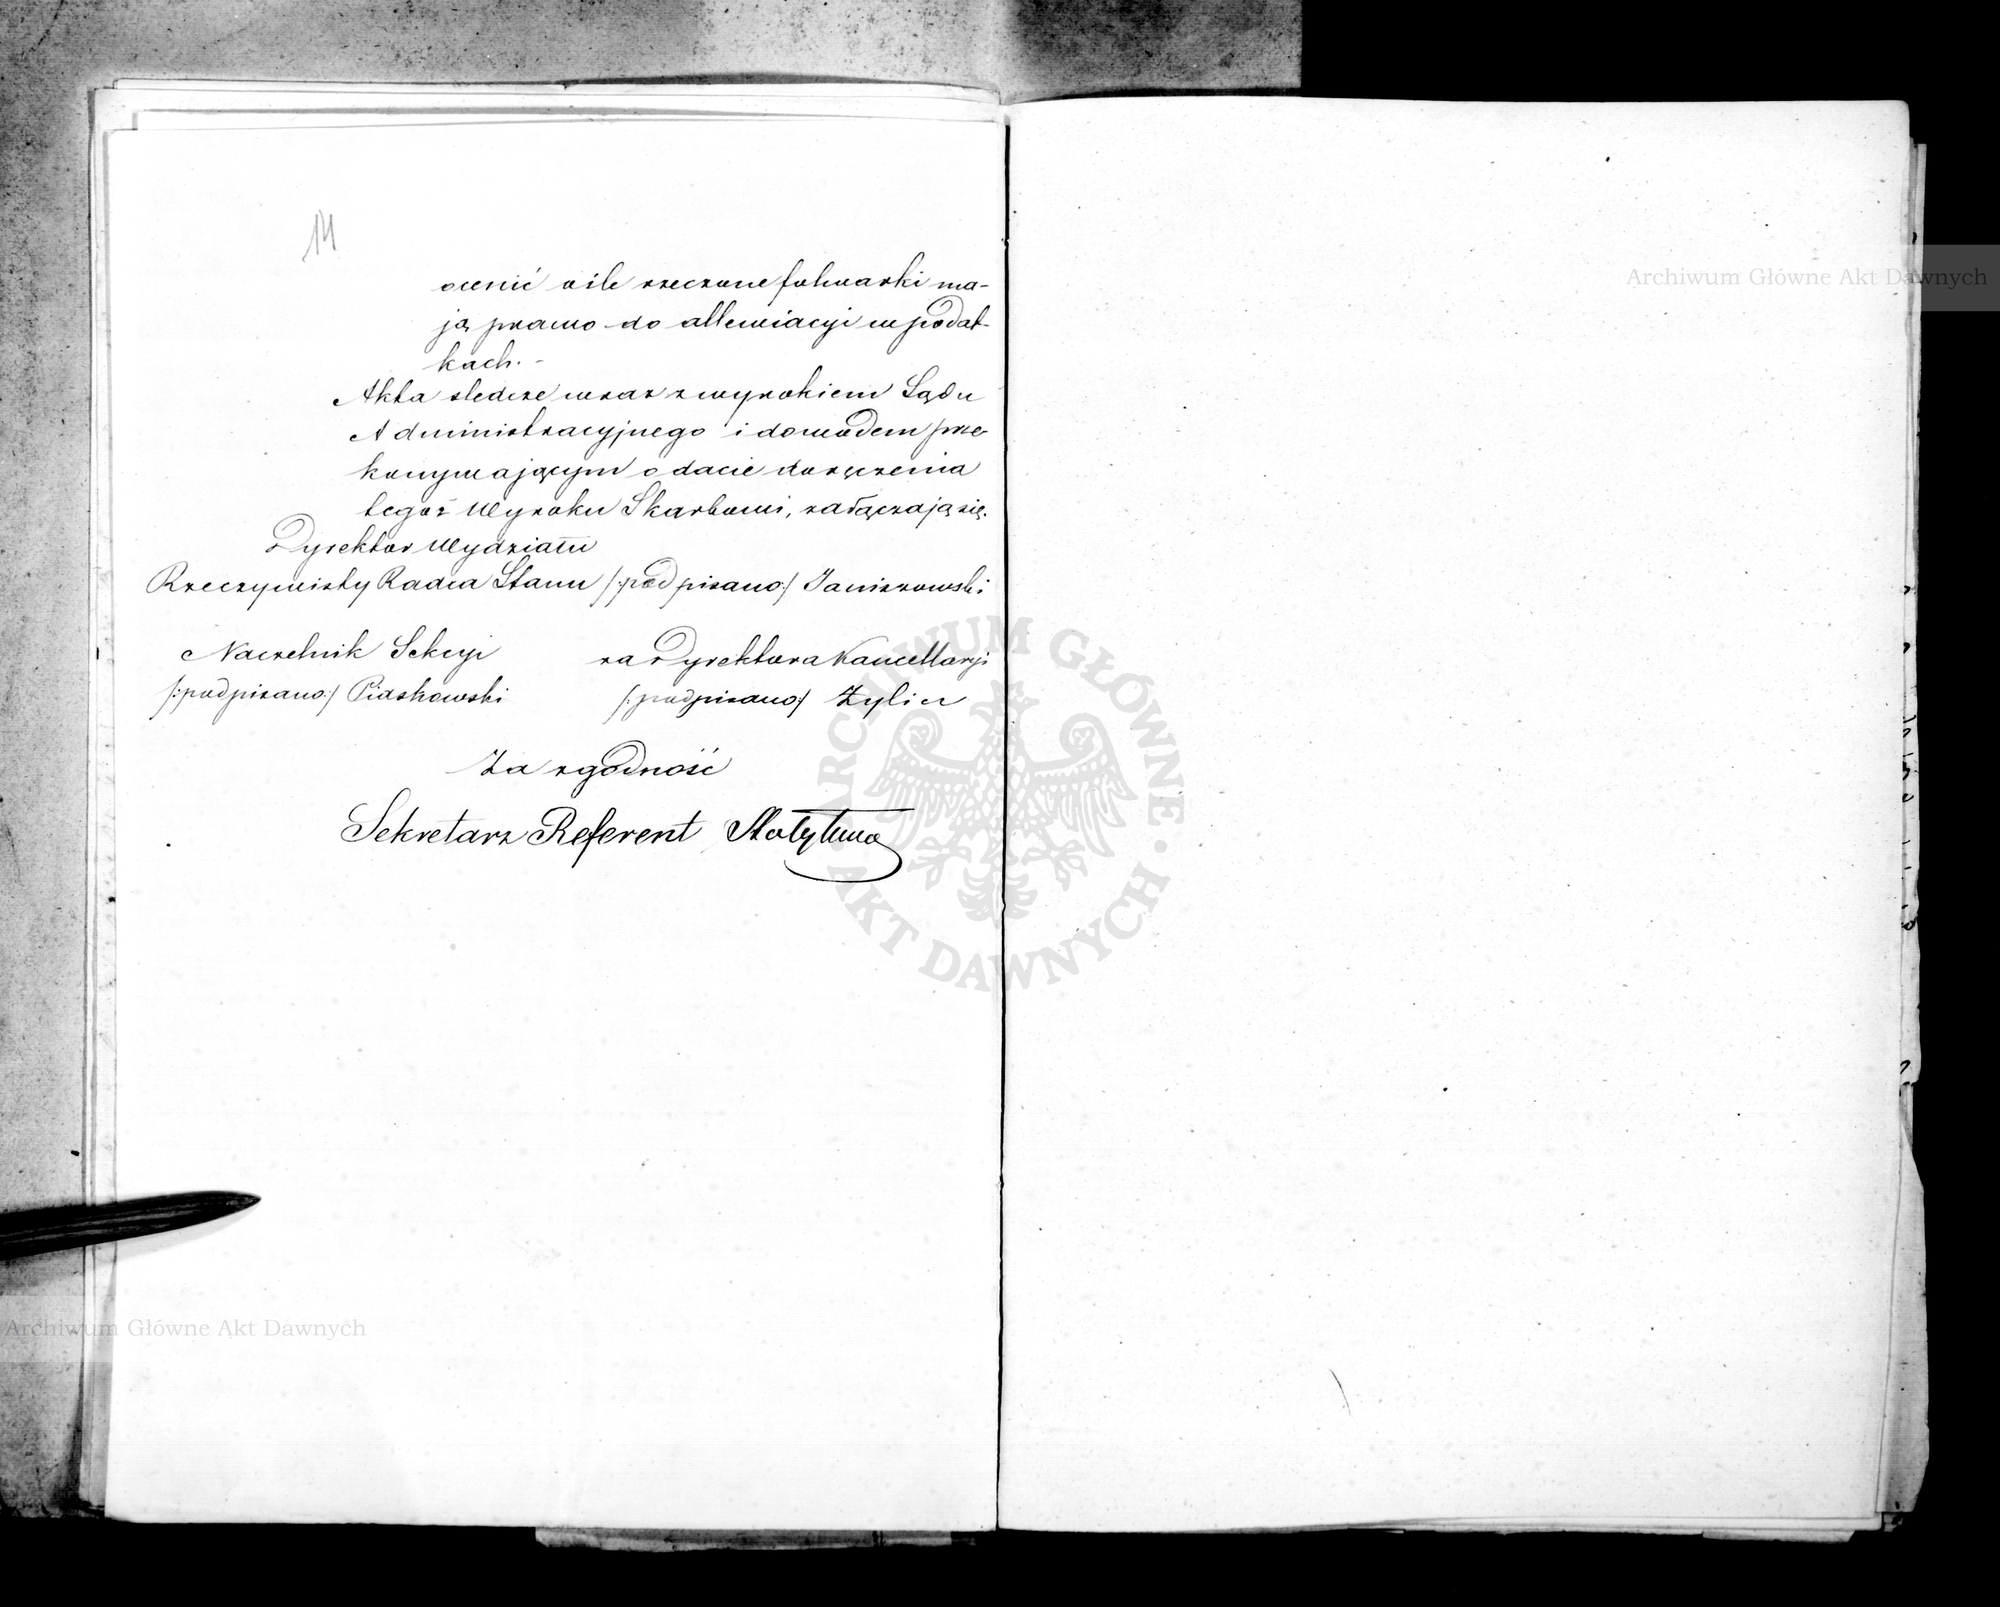 14
ocenić o ile rzeczone folwarki ma-
ją prawo do allewiacyi w podat-
kach. -
Akta śledcze wraz z wyrokiem Sądu
Administracyjnego i dowodem prze-
konywającym o dacie doręczenia
tegoż Wyroku Skarbowi, załączają się.
Dyrektor Wydziału
Rzeczywisty Radca Stanu /:podpisano:/ Janiszowski
Naczelnik Sekcyi
/:podpisano:/ Piaskowski
za Dyrektora Kancellaryi
/:podpisano:/ Żylicz
Za zgodność
Sekretarz Referent
Archiwum Główne Akt Dawnych
ARCHIWUM GŁÓWNE AKT DAWNYCH
Archiwum Główne Akt Dawnych